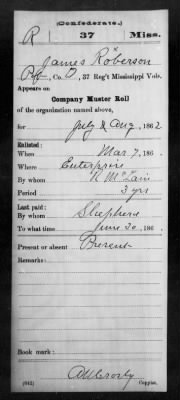 (Confederate.)
R 37 Miss.
James Roberson
Pvt, Co. D, 37 Reg't Mississippi Vols.
Appears on
Company Muster Roll
of the organization named above,
for July & Aug, 1862
Enlisted:
When Mar 7, 186
Where Enterprise
By whom McLain
Period 3 yrs
Last paid:
By whom Stephens
To what time June 30, 186
Present or absent Present
Remarks:
Book mark:
(642) Copyist.